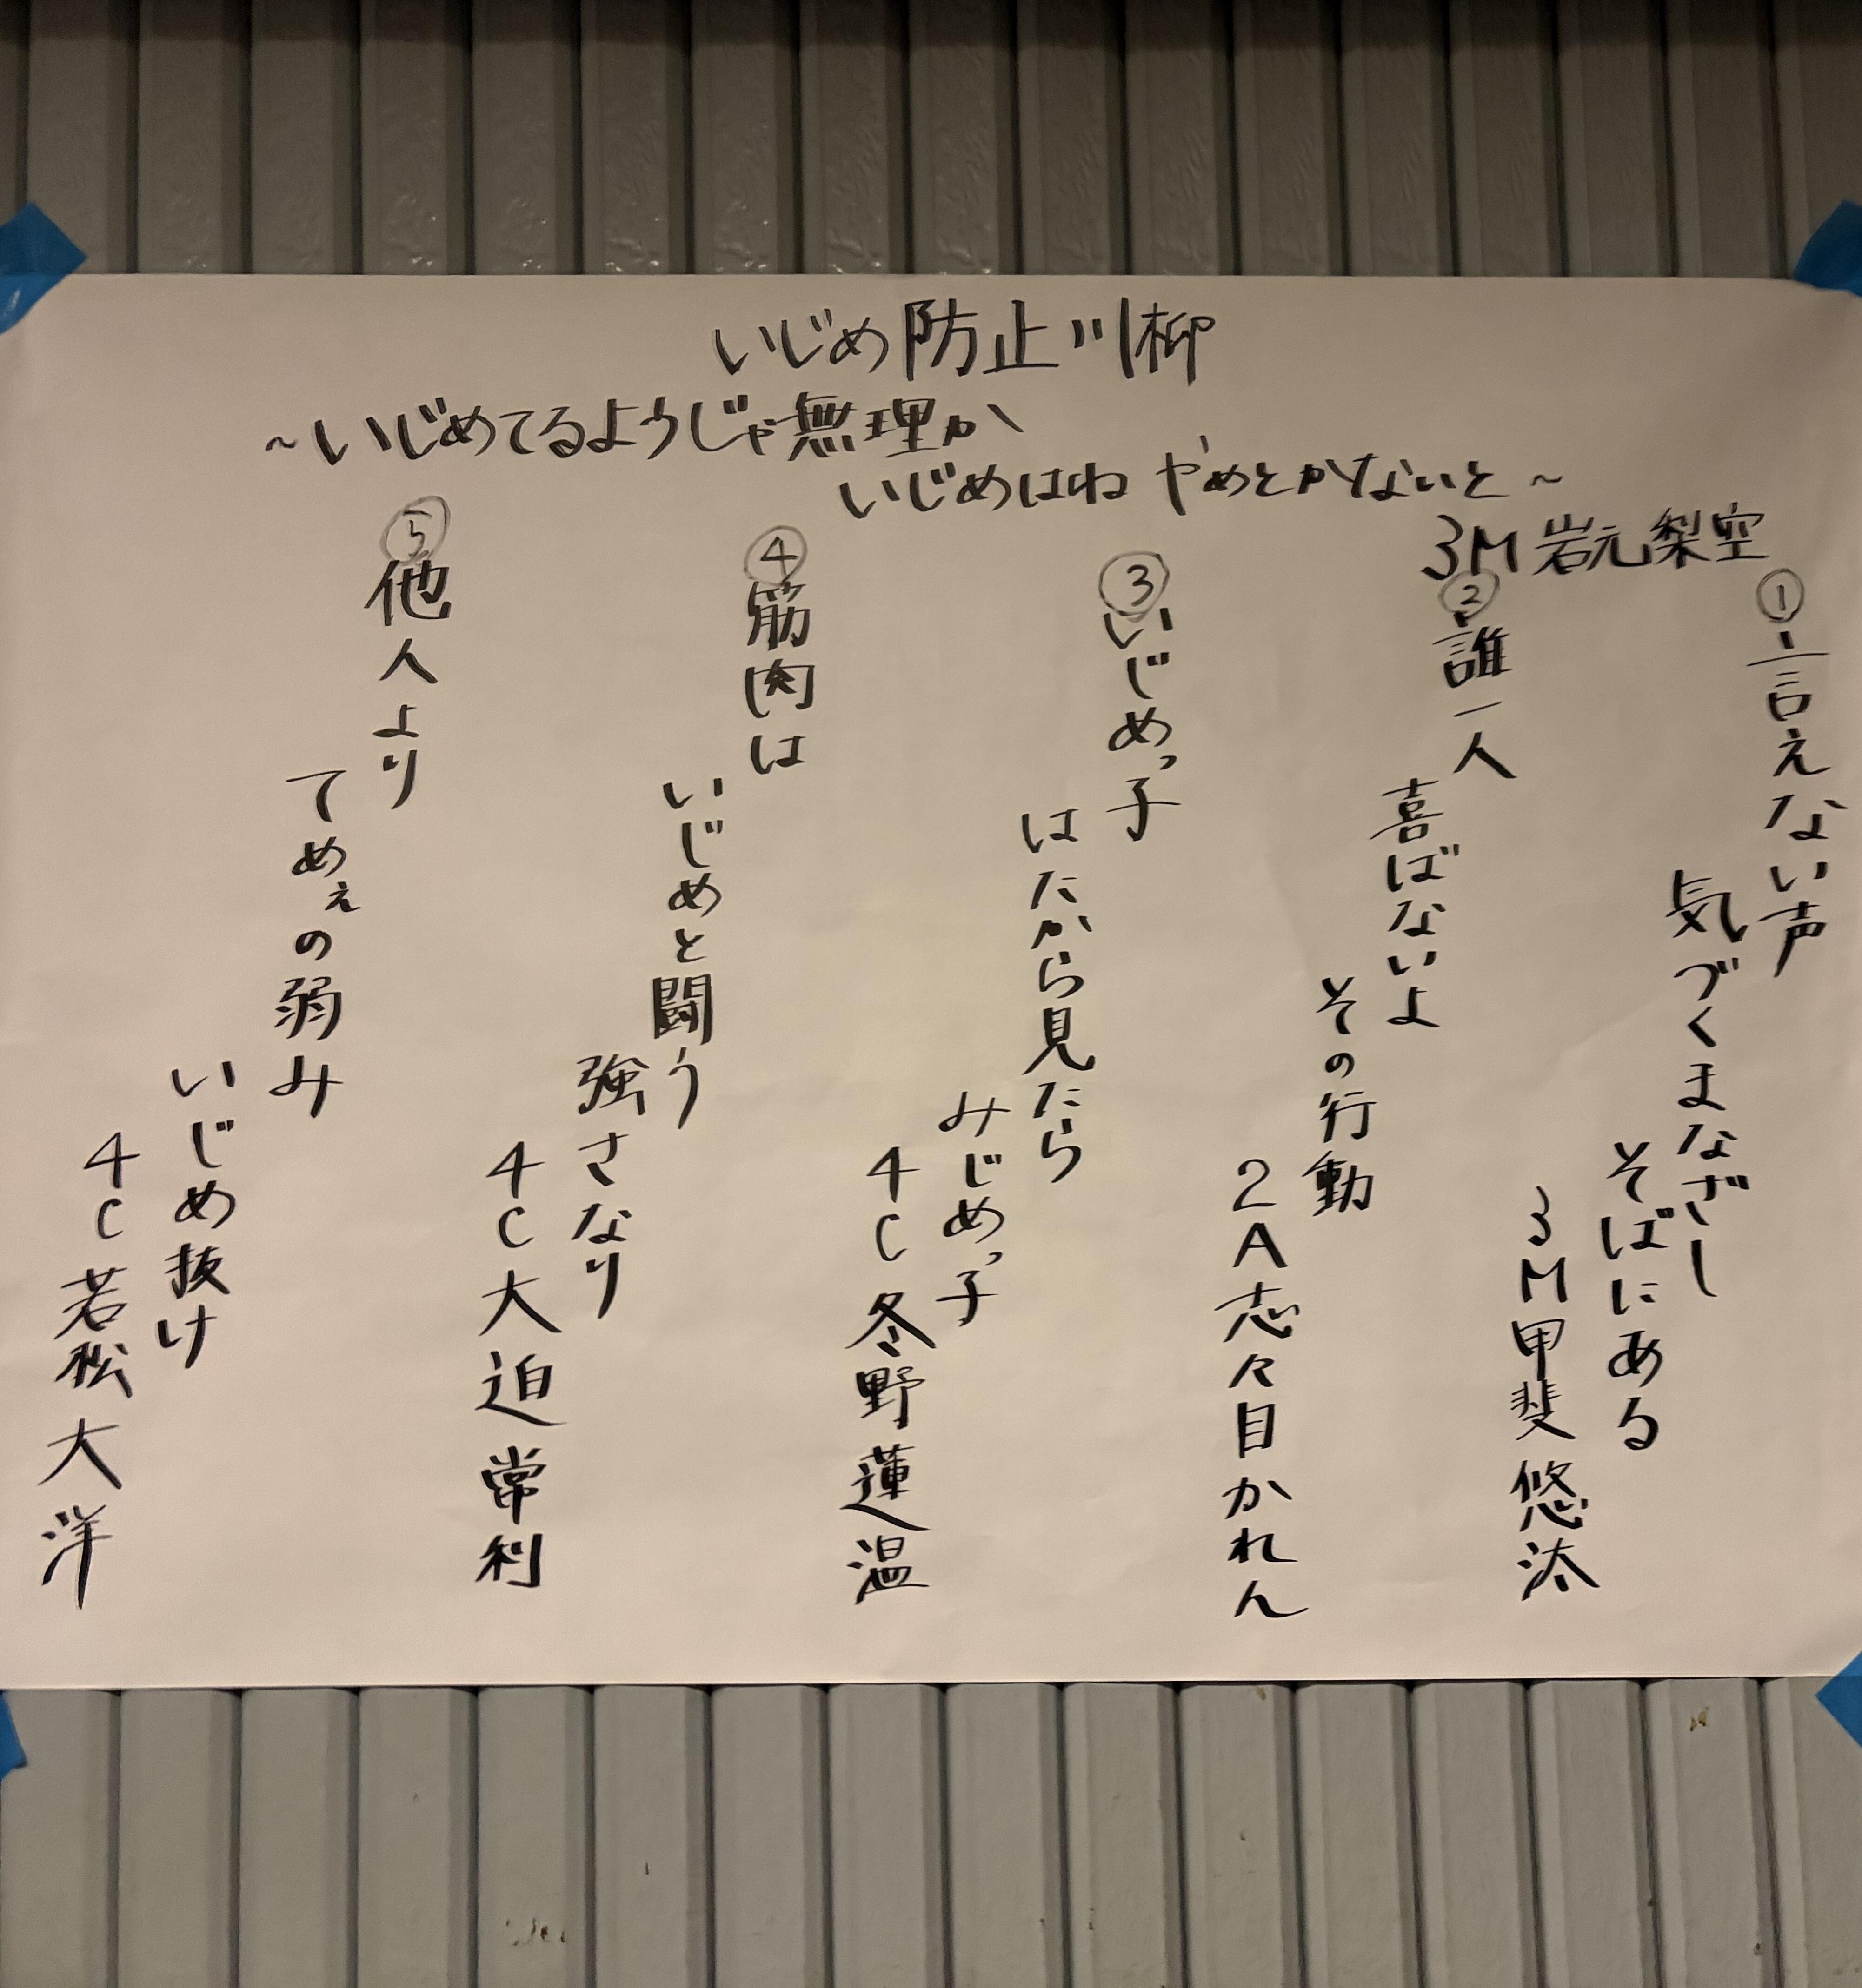 いじめ防止川柳
~いじめてるようじゃ無理か
いじめはね やめとかないと~
3M 岩元梨空
①言えない声
気づくまなざし
そばにある
3M甲斐悠汰
②誰一人
喜ばないよ
その行動
2A志々目かれん
③いじめっ子
はたから見たら
みじめっ子
4C冬野蓮温
④筋肉は
いじめと闘う
強さなり
4C大迫常利
⑤他人より
てめぇの弱み
いじめ抜け
4C若松大洋